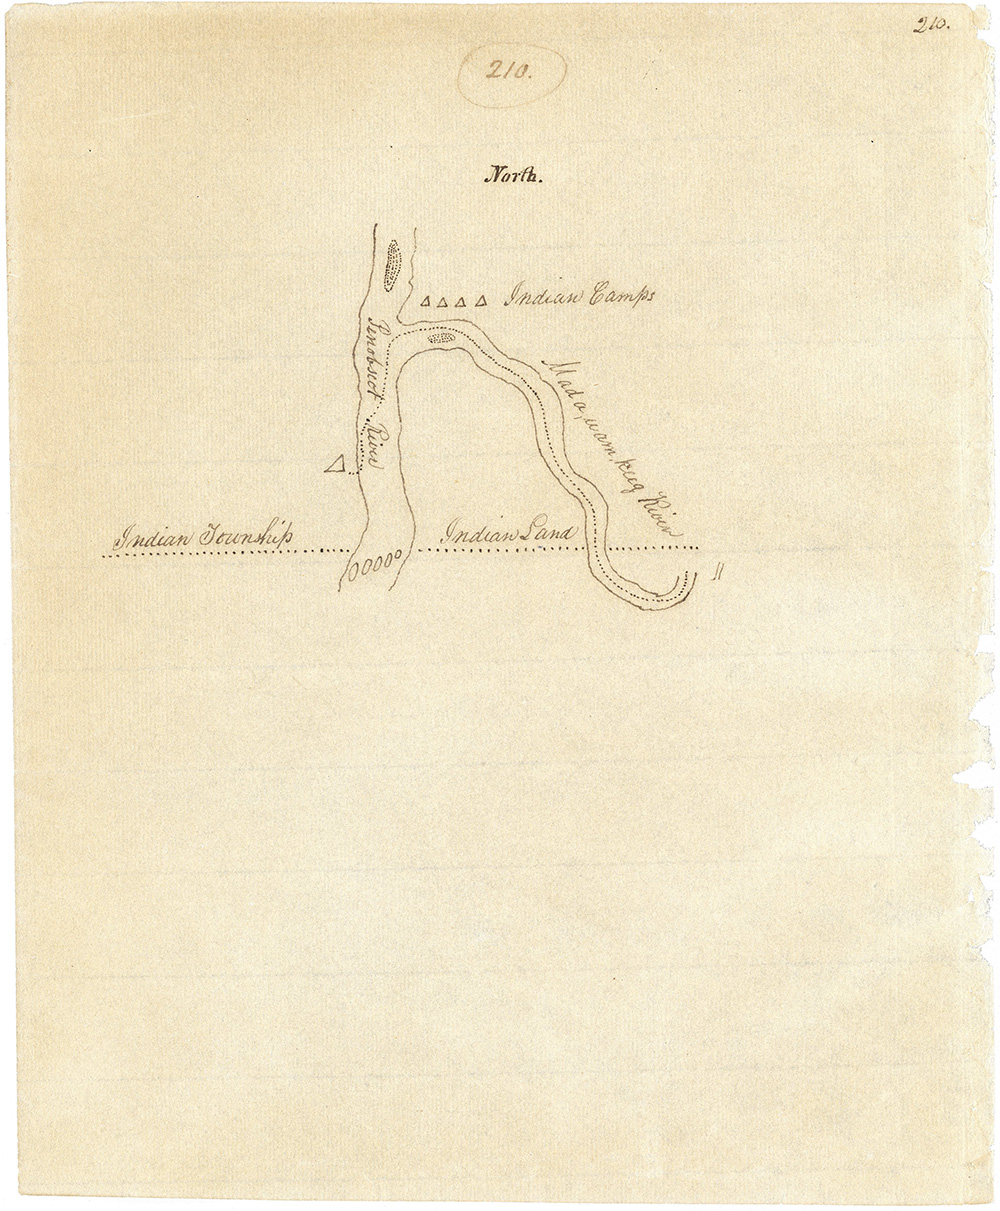 210.
210.
North.
Indian Camps
Penobscot River
Mada,wam,keag River
Indian Township
Indian Land